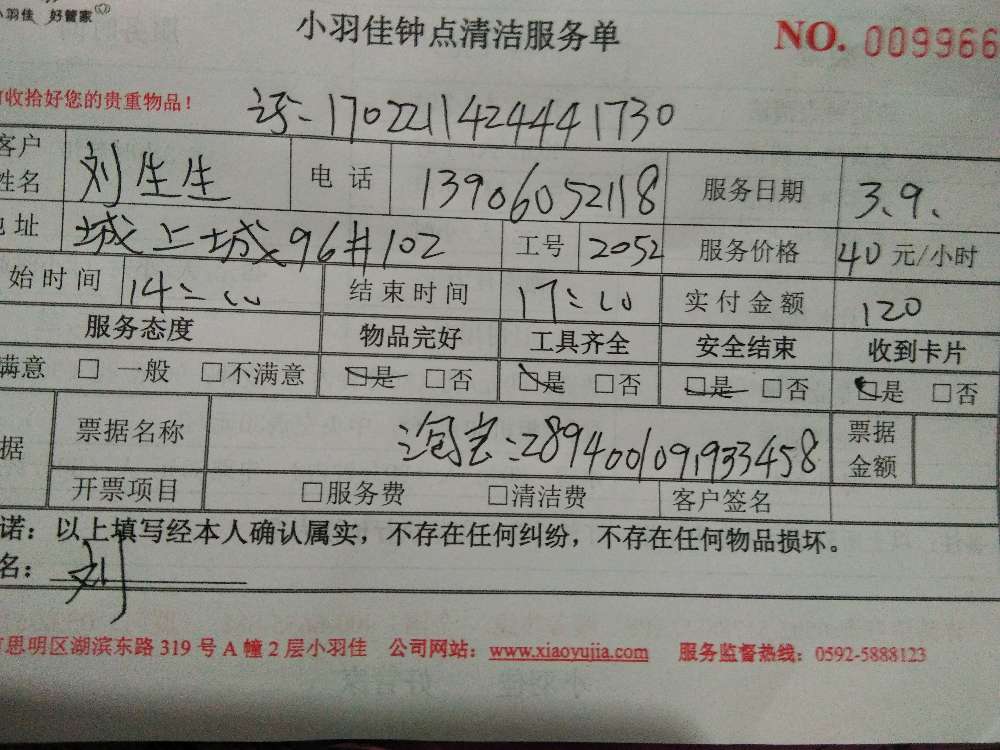 小羽佳 好管家
小羽佳钟点清洁服务单 NO. 009966
收拾好您的贵重物品！ 1702211424441730
客户姓名 刘生生 电话 13906052118 服务日期 3.9.
地址 城上城96#102 工号 2052 服务价格 40元/小时
始时间 14:00 结束时间 17:00 实付金额 120
服务态度 物品完好 工具齐全 安全结束 收到卡片
满意 □ 一般 □不满意 □是 □否 □是 □否 □是 □否 □是 □否
据 票据名称 淘宝:2894001091933458 票据金额
开票项目 □服务费 □清洁费 客户签名
诺：以上填写经本人确认属实，不存在任何纠纷，不存在任何物品损坏。
名：刘
思明区湖滨东路319号A幢2层小羽佳 公司网站：www.xiaoyujia.com 服务监督热线：0592-5888123